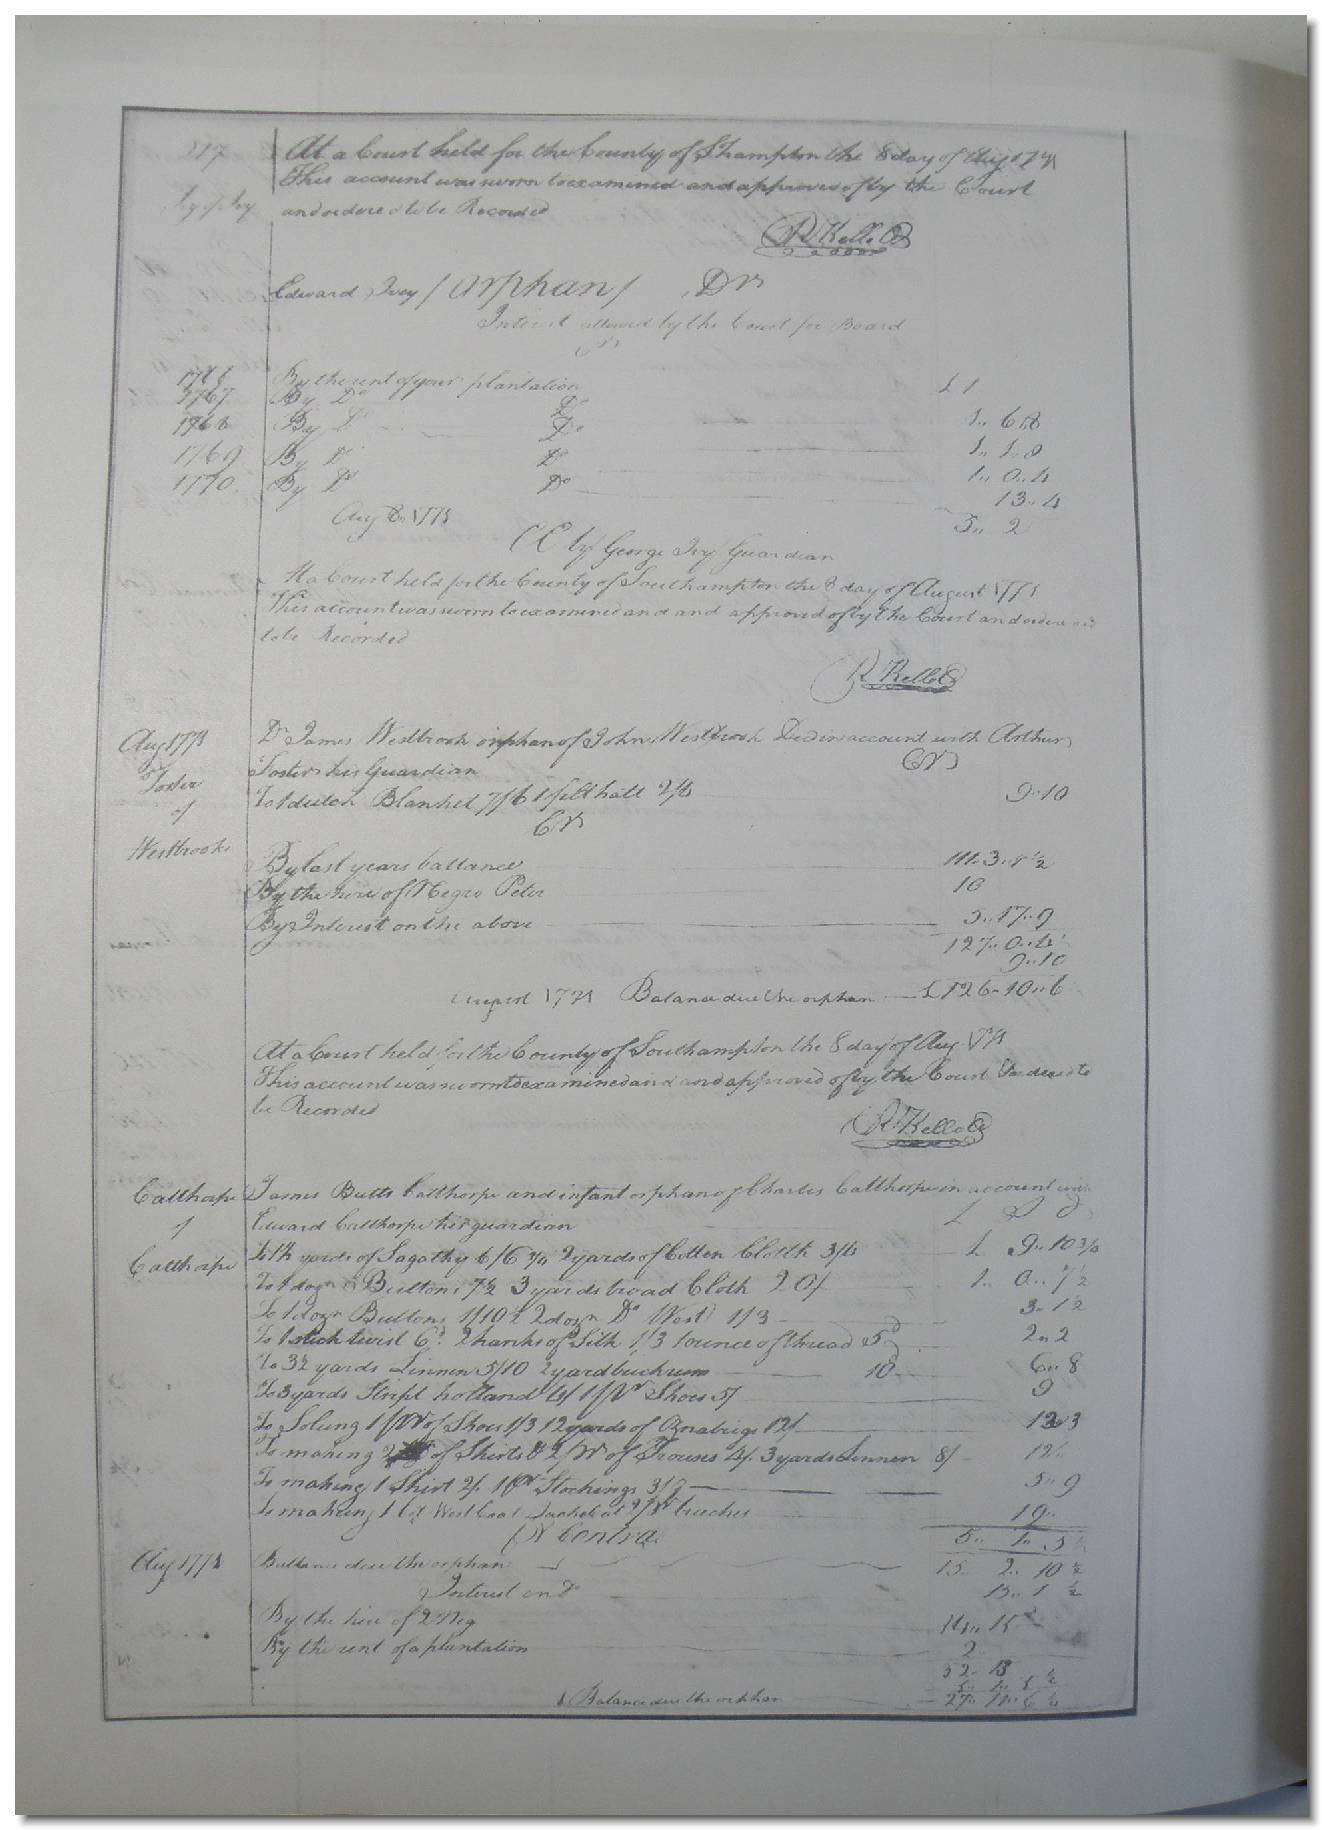 217
At a Court held for the County of S'hampton the 8 day of Aug 1771
This account was sworn to examined and approved of by the Court
and ordered to be Recorded
R Kello C
Edward Ivey / Orphan / Dr
Interest allowed by the Court for Board
By the rent of your plantation £ 1
1767 By Do Do 1.. 6.. 8
1768 By Do Do 1.. 1.. 0
1769 By Do Do 1.. 0.. 4
1770 By Do Do 13.. 4
Aug 8 1771 5.. 2
by George Ivy Guardian
At a Court held for the County of Southampton the 8 day of August 1771
This account was sworn to examined and and approved of by the Court and ordered
to be Recorded
R Kello C
Aug 1771 Dr James Westbrook orphan of John Westbrook Decd in account with Arthur
Foster Foster his Guardian Cr
of To 1 dutch Blanket 7/6 1 felt hatt 2/4 9.. 10
Cr
Westbrook By last years ballance 111.. 3.. 8 ½
By the hire of Negro Peter 10
By Interest on the above 5.. 17.. 9
127.. 0.. 4
9.. 10
August 1771 Balance due the orphan £ 126.. 10.. 6
At a Court held for the County of Southampton the 8 day of Aug 1771
This account was sworn to examined and and approved of by the Court Ordered to
be Recorded
R Kello C
Calthorpe James Butts Calthorpe and infant orphan of Charles Calthorpe in account with
of Edward Calthorpe his guardian £ S D
Calthorpe yards of Sagathy 6/6 ¾ 2 yards of Cotten Cloth 3/4 £ 9.. 10 ¾
To 1 dozn Buttons 7½ 3 yards broad Cloth 20/ 1.. 0.. 7 ½
To 1 dozn Buttons 1/10 ½ 2 dozn Do West 1/3 3.. 1 ½
To 1 stick twist 6d 2 hanks of Silk 1/3 1 ounce of thread 5d 2.. 2
To 3½ yards Linnen 5/10 1 yard buckrum 10 6.. 8
To 3 yards Stript holland 4/ 1 pr Shoes 5/ 9
To Soling 1 pr of Shoes 1/3 12 yards of Oznabrigs 12/ 13.. 3
To making 2 of Shirts & 2 pr of Trouses 4/. 3 yards Linnen 8/ 12..
To making 1 Shirt 2/. 1 pr Stockings 3/9 5.. 9
To making 1 Coat West Coat Jacket & 2 pr breeches 19..
Pr Contra 5.. 1.. 5
Aug 1771 Ballance due the orphan 15.. 2.. 10 ½
Interest on Do 15.. 1 ½
By the hire of 2 Neg 14.. 15
By the rent of a plantation 2
32.. 13
5.. 1.. 5 ½
Balance due the orphan 27.. 11.. 6